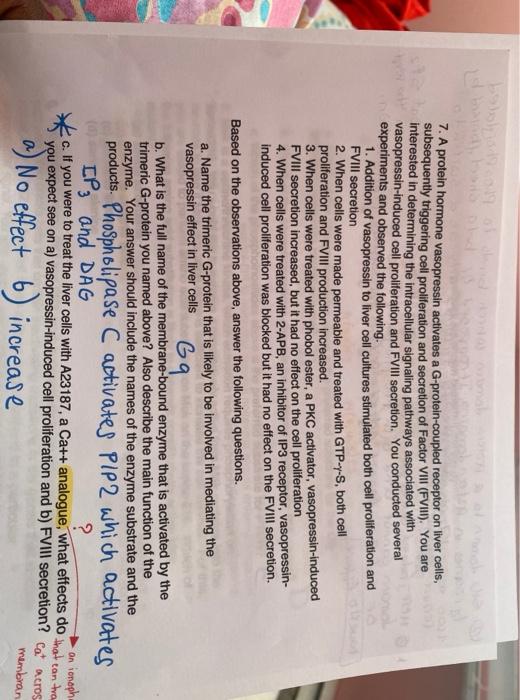 7. A protein hormone vasopressin activates a G-protein-coupled receptor on liver cells,
subsequently triggering cell proliferation and secretion of Factor VIII (FVIII). You are
interested in determining the intracellular signaling pathways associated with
vasopressin-induced cell proliferation and FVIII secretion. You conducted several
experiments and observed the following.
1. Addition of vasopressin to liver cell cultures stimulated both cell proliferation and
FVIII secretion
2. When cells were made permeable and treated with GTP-γ-S, both cell
proliferation and FVIII production increased.
3. When cells were treated with phobol ester, a PKC activator, vasopressin-induced
FVIII secretion increased, but it had no effect on the cell proliferation
4. When cells were treated with 2-APB, an inhibitor of IP3 receptor, vasopressin-
induced cell proliferation was blocked but it had no effect on the FVIII secretion.
Based on the observations above, answer the following questions.
a. Name the trimeric G-protein that is likely to be involved in mediating the
vasopressin effect in liver cells
Gq
b. What is the full name of the membrane-bound enzyme that is activated by the
trimeric G-protein you named above? Also describe the main function of the
enzyme. Your answer should include the names of the enzyme substrate and the
products. Phospholipase C activates PIP2 which activates
IP3 and DAG
?
c. If you were to treat the liver cells with A23187, a Ca++ analogue, what effects do
you expect see on a) vasopressin-induced cell proliferation and b) FVIII secretion?
an ionoph
that can tra
Ca+ acros
membran
a) No effect b) increase